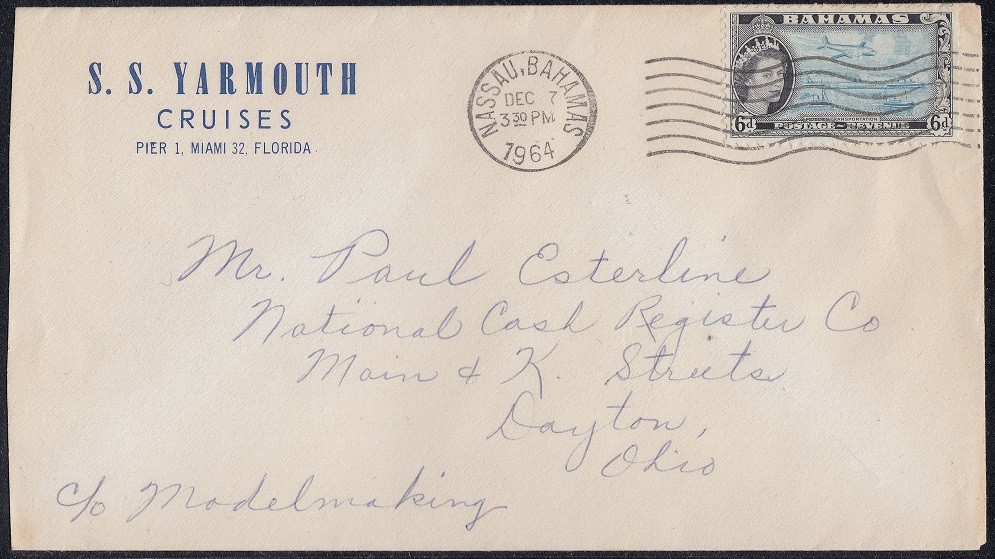 S. S. YARMOUTH
CRUISES
PIER 1, MIAMI 32, FLORIDA
NASSAU, BAHAMAS
DEC 7
3 30 PM
1964
BAHAMAS
6d
TRANSPORTATION
6d
POSTAGE & REVENUE
Mr. Paul Esterline
National Cash Register Co
Main & K. Streets
Dayton,
Ohio
c/o Modelmaking